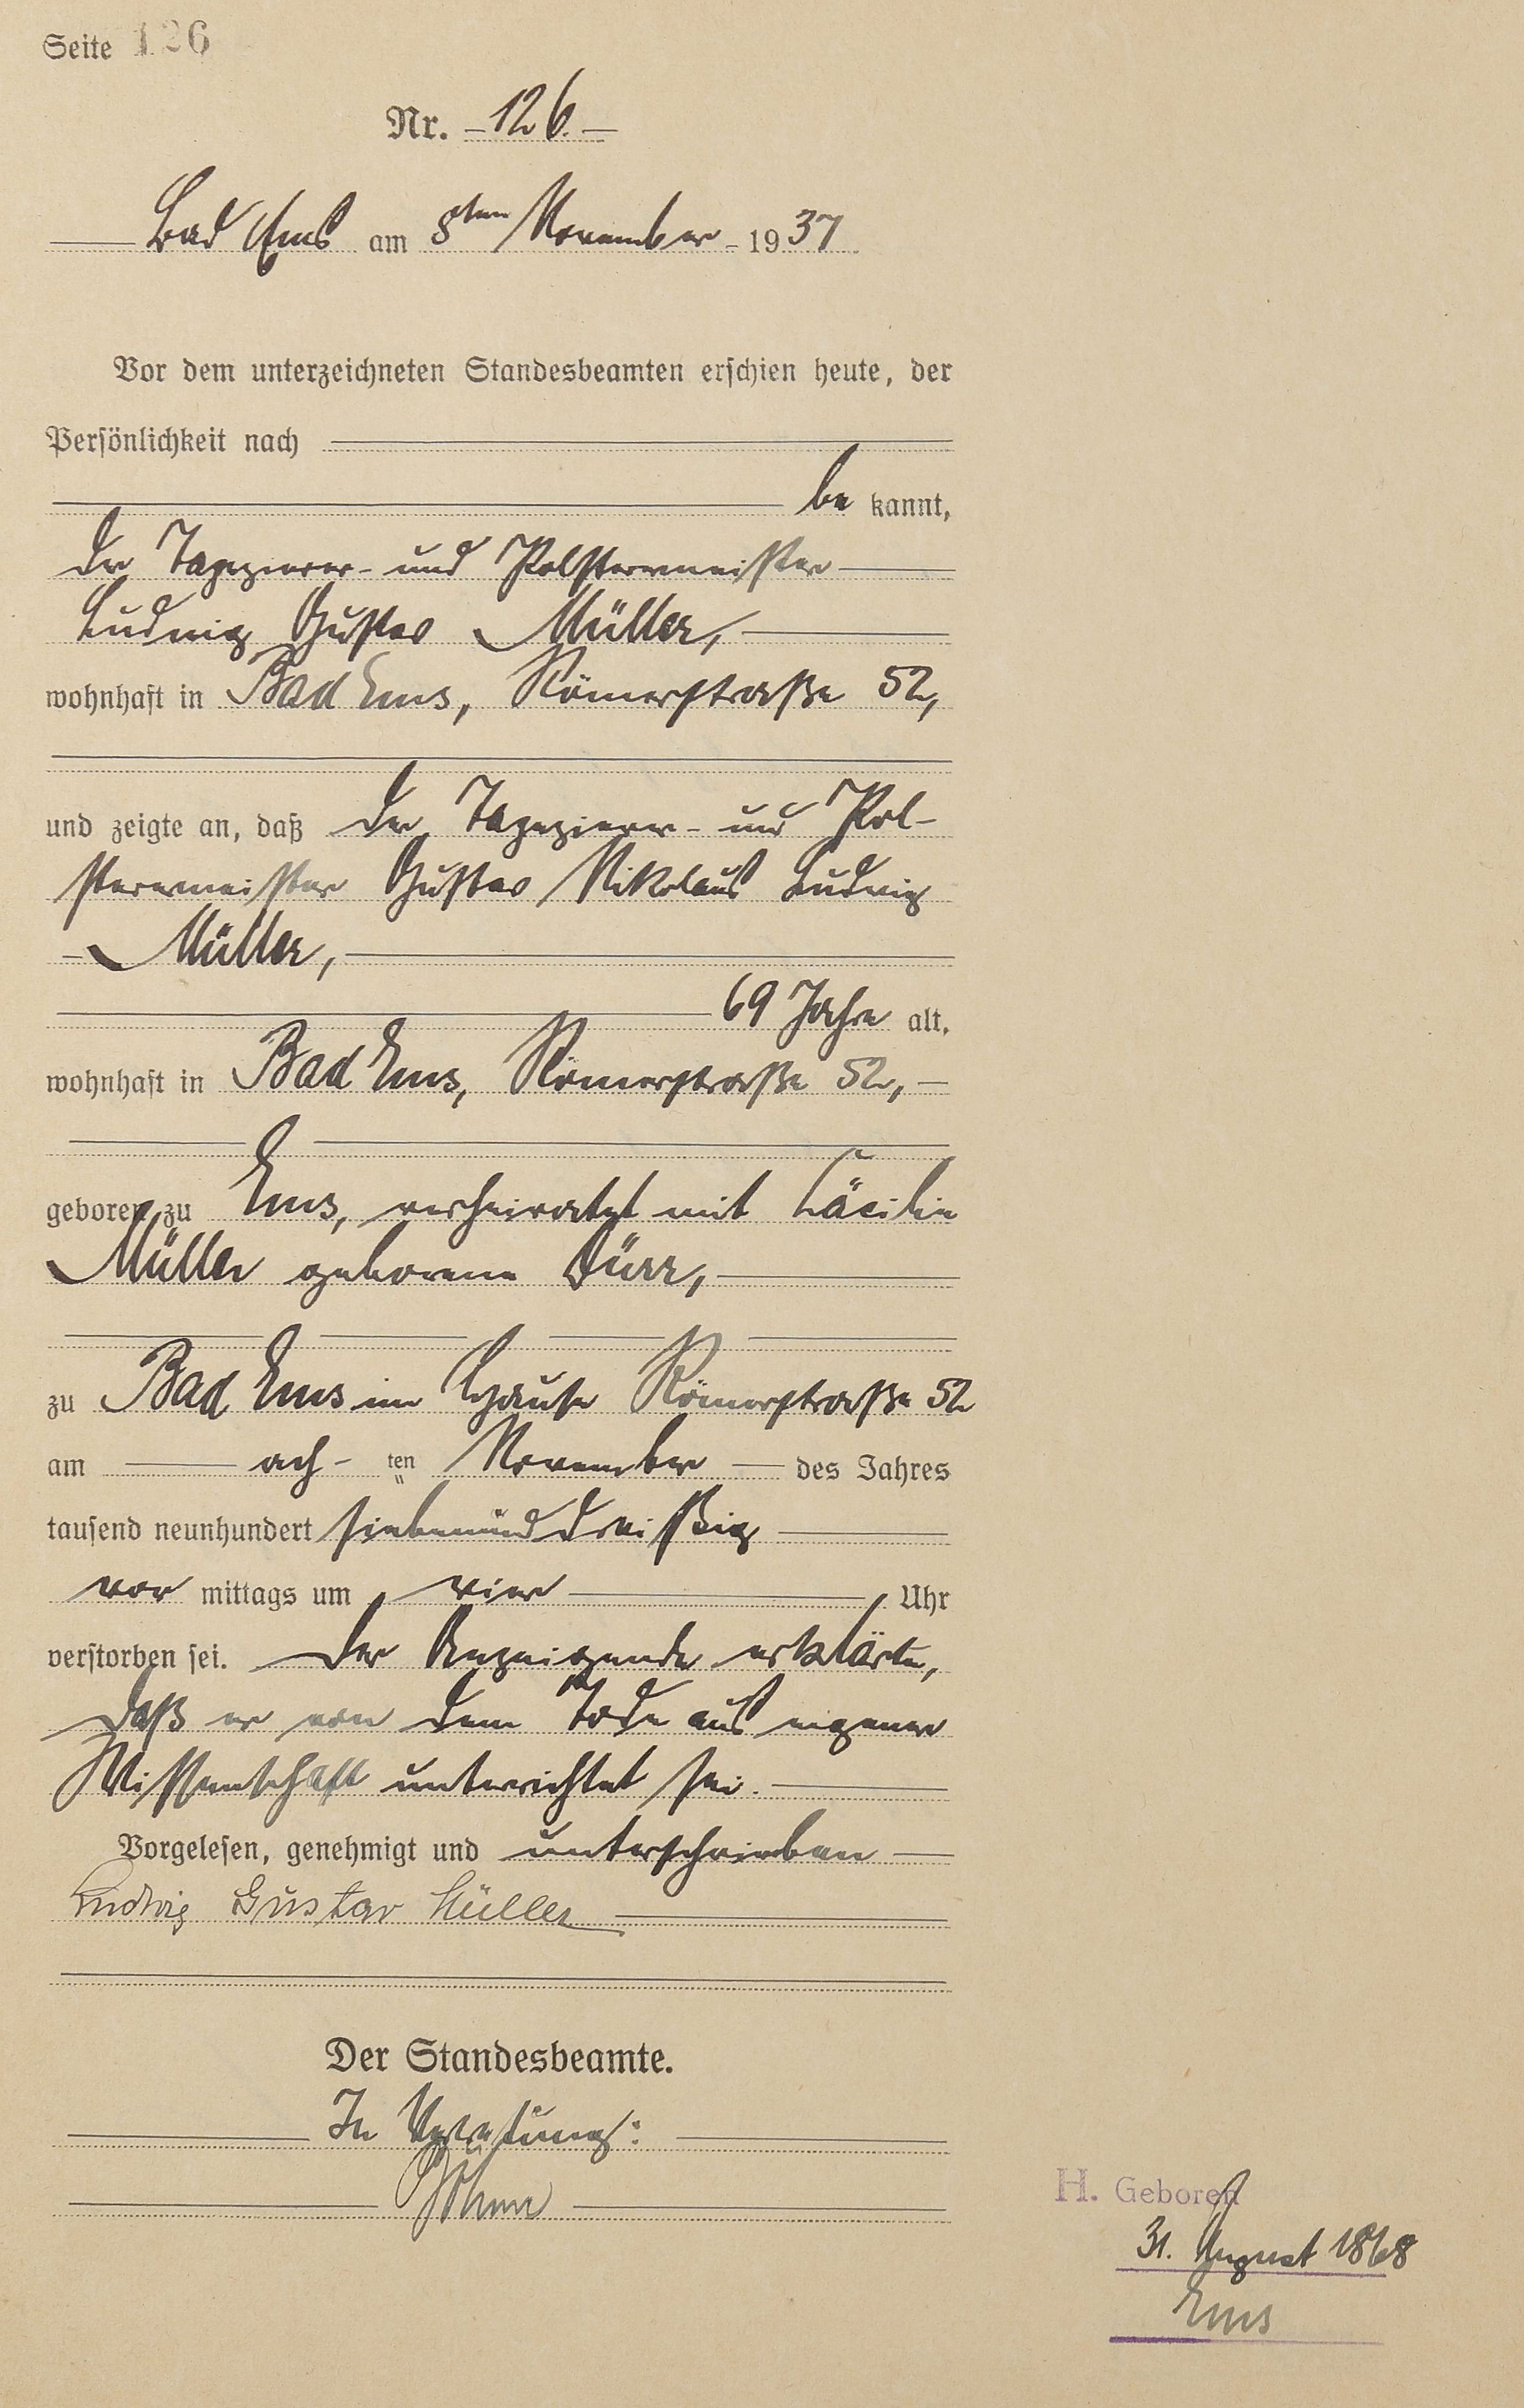 Seite 126
Nr. 126.
Bad Ems am 8ten November 1937
Vor dem unterzeichneten Standesbeamten erschien heute, der
Persönlichkeit nach
be kannt,
der Tapezierer- und Polstermeister
Ludwig Gustav Müller,
wohnhaft in Bad Ems, Römerstraße 52,
und zeigte an, daß der Tapezierer- und Pol-
stermeister Gustav Nikolaus Ludwig
Müller,
69 Jahre alt,
wohnhaft in Bad Ems, Römerstraße 52,
geboren zu Ems, verheiratet mit Cäcilie
Müller geborene Dürr,
zu Bad Ems im Hause Römerstraße 52
am ach- ten November des Jahres
tausend neunhundert siebenunddreißig
vor mittags um vier Uhr
verstorben sei. Der Anzeigende erklärte,
daß er von dem Tode aus eigener
Wissenschaft unterrichtet sei.
Vorgelesen, genehmigt und unterschrieben
Ludwig Gustav Müller
Der Standesbeamte.
In Vertretung:
H. Geboren
31. August 1868
Ems